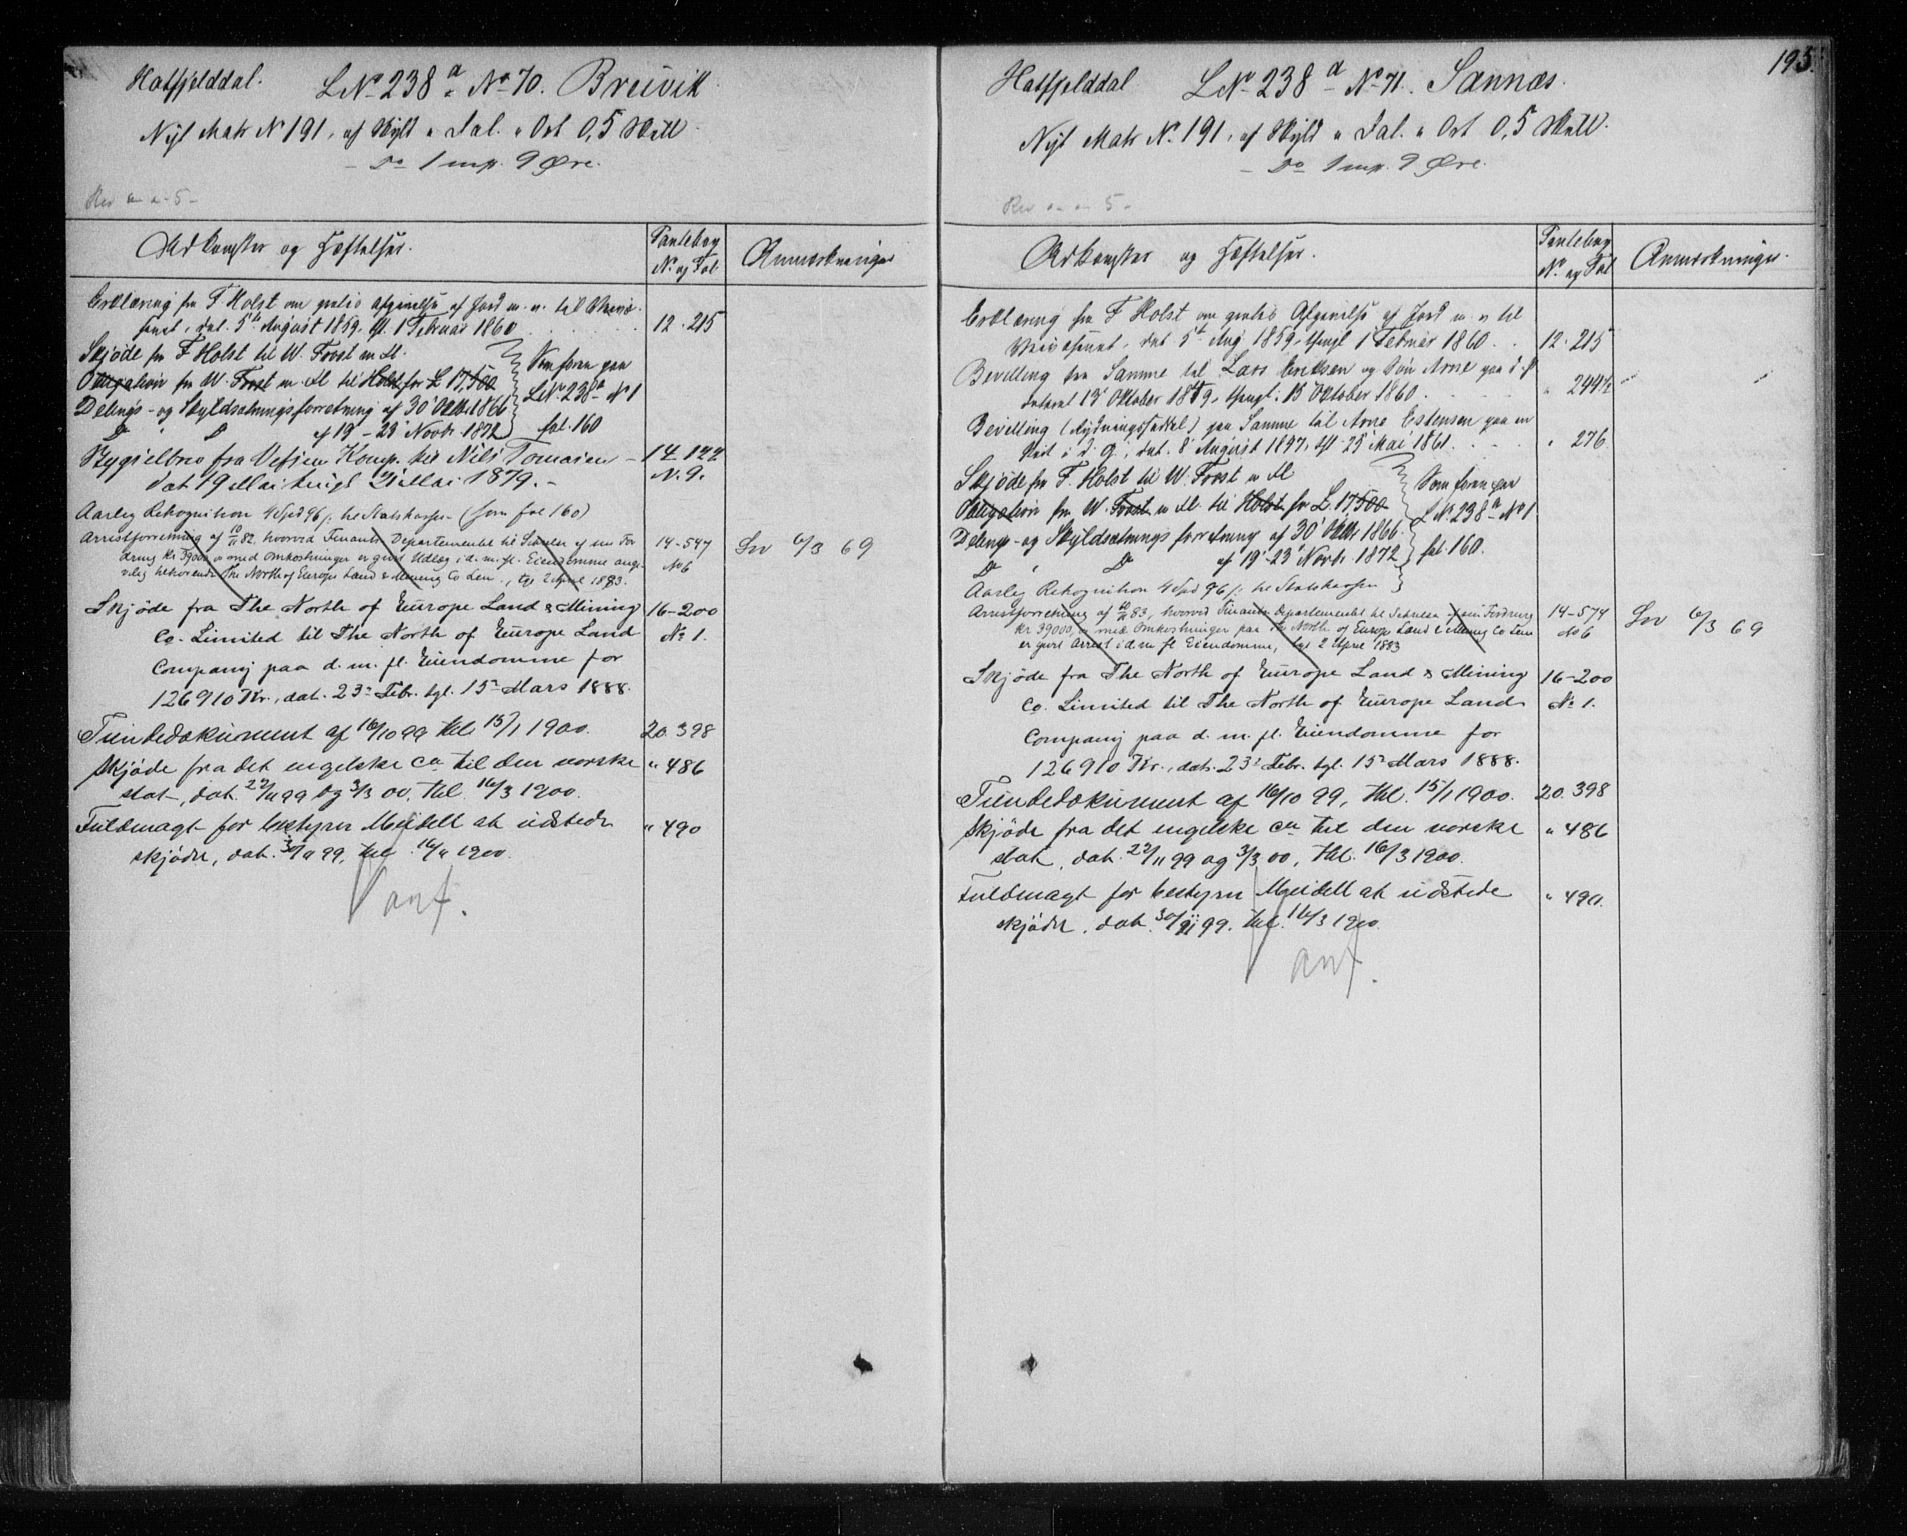 Hatfjelddal. L№ 238 a № 70. Breivik
Nyt Matr N 191, af Skyld " Dal. " Ort 0,5 Skill
- Do 1 mp. 9 Øre.
Rev " " 5 -
Adkomster og Hæftelser.
Pantebog
N. og Fol
Anmærkninger
Erklæring fra F Holst om gratis Afgivelse af Jord m. v. til Veivæ-
senet, dat. 5te August 1859, tl. 1 Februar 1860
12 . 215
Skjøde fra F Holst til W. Frost m. fl.
Obligation fra W. Frost m fl til Holst for L 17,500
Delings- og Skyldsætningsforretning af 30' Oktbr 1866
D " D af 19 - 23 Novbr. 1872
Som foran paa
L№ 238 a № 1
fol. 160
Bygselbrev fra Vefsen Komp. til Nils Tomasen -
dat 19 Mai tingl. Mai 1879. -
14 122
N. 9.
Aarlig Rekognition 4 Spd 96 /: til Statskassen (som fol 160)
Arrestforretning af 10/11 82, hvorved Finants Departementet til Sikkelse af en For
dring Kr. 39000, med Omkostninger er givet Udlæg i d. m. fl. Eiendomme ang-
velig tilhørende The North of Europe Land & Mining Co Lim., tgl 2 April 1883.
14-547
№ 6
Slv 6/3 69
Skjøde fra The North of Europe Land & Mining
Co. Limited til The North of Europe Land
Company paa d. m. fl. Eiendomme for
126910 Kr., dat. 23' Febr. tgl. 15' Mars 1888.
16-200
№ 1.
Tiendedokument af 16/10 99 thl. 15/1 1900.
20. 398
Skjøde fra det engelske co til den norske
stat, dat. 22/11 99 og 3/3 00, thl. 16/3 1900.
" 486
Fuldmagt for bestyrer Meidell at udstede
skjøder, dat. 30/11 99, thl. 16/3 1900.
" 490
anf.
195.
Hatfjelddal L№ 238 a № 71. Sannæs.
Nyt Matr N. 191, af Skyld " Dal. " Ort 0,5 Skill.
- Do 1 mp. 9 Øre.
Rev " " 5 -
Adkomster og Hæftelser.
Pantebog
N. og Fol
Anmærkninger.
Erklæring fra F Holst om gratis Afgivelse af Jord m. v til
Veivæsenet, dat 5te Aug 1859, thingl 1 Februar 1860. .
12. 215
Bevilling fra Samme til Lars Eriksen og Søn Arne paa d. P
dateret 13' Oktober 1849, thingl. 15 Oktober 1860.
" 244
Bevilling (Rydningsseddel) fra Samme til Arne Estensen paa en
Part i d. G., dat. 8' August 1857, tl. 25' Mai 1861.
" 276
Skjøde fra F. Holst til W. Frost m fl
Obligation fra W. Frost m fl. til Holst for L. 17,500
Delings- og Skyldsætningsforretning af 30' Oktbr 1866.
D " D af 19'-23' Novbr. 1872
Som foran paa
L№ 238 a № 1
fol. 160.
Aarlig Rekognition 4 Spd 96 /: til Statskassen
Arrestforretning af 10/11 83, hvorved Finants Departementet til Sikkelse af en Fordring
Kr 39000, med Omkostninger paa The North of Europe Land & Mining Co Lim
er gjort Arrest i d. m fl Eiendomme, tgl 2 April 1883
14-574
№ 6
Slv 6/3 69
Skjøde fra The North of Europe Land & Mining
Co. Limited til The North of Europe Land
Company paa d. m. fl. Eiendomme for
126910 Kr., dat. 23' Febr. tgl. 15' Mars 1888.
16-200
№ 1.
Tiendedokument af 16/10 99, thl. 15/1 1900.
20. 398
Skjøde fra det engelske co til den norske
stat, dat. 22/11 99 og 3/3 00, thl. 16/3 1900.
" 486
Fuldmagt for bestyrer Meidell at udstede
skjøder, dat. 30/11 99. thl. 16/3 1900.
" 490.
anf.